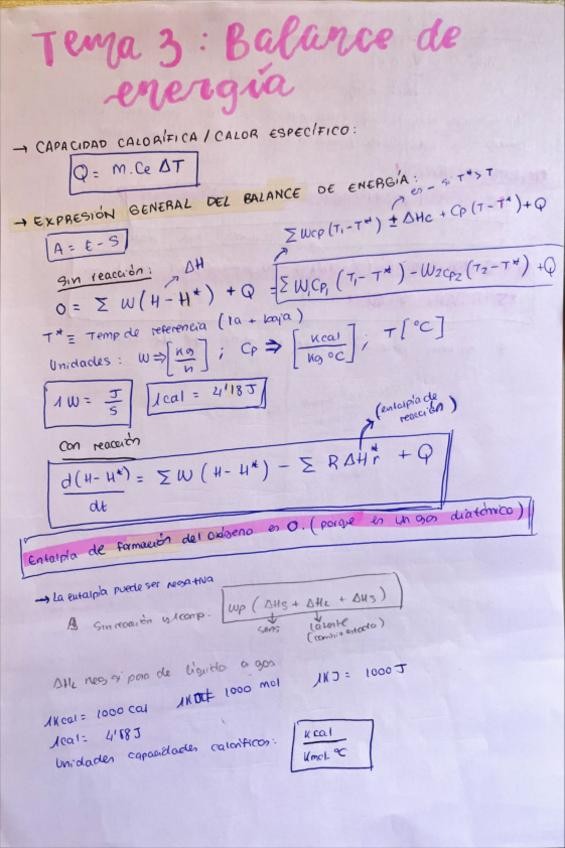 Tema 3: Balance de
energía
→ CAPACIDAD CALORÍFICA / CALOR ESPECÍFICO:
Q = m.Ce ΔT
→ EXPRESIÓN GENERAL DEL BALANCE DE ENERGÍA:
en - si T* > T
A = E - S
Σ Wcp (T₁-T*) ± ΔHc + Cp (T-T*) + Q
Sin reacción:
ΔH
0 = Σ W (H - H*) + Q = Σ W₁Cp₁ (T₁ - T*) - W₂Cp₂ (T₂ - T*) + Q
T* ≡ Temp de referencia (la + baja)
Unidades: W ⇒ [kg/h] ; Cp ⇒ [kcal/kg °C] ; T [°C]
1W = J/s
1cal = 4'18 J
(entalpía de
reacción)
Con reacción
d(H-H*)/dt = Σ W (H - H*) - Σ R ΔHr* + Q
Entalpía de formación del oxígeno es 0. (porque es un gas diatómico)
→ La entalpía puede ser negativa
Sin reacción y 1 comp.
Wp (ΔHs + ΔHc + ΔHs)
sens
latente
(cambio estado)
de líquido a gas
1Kcal = 1000 cal
1000 mol
1KJ = 1000 J
1cal = 4'18 J
Unidades capacidades caloríficas:
Kcal/Kmol °C